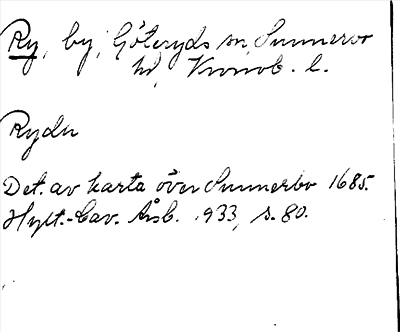 Ry, by, Göteryds sn, Sunnerbo
hd, Kronob. l.
Ryder
Det. av karta över Sunnerbo 1685.
Hylt.-Cav. Årsb. 1933, s. 80.